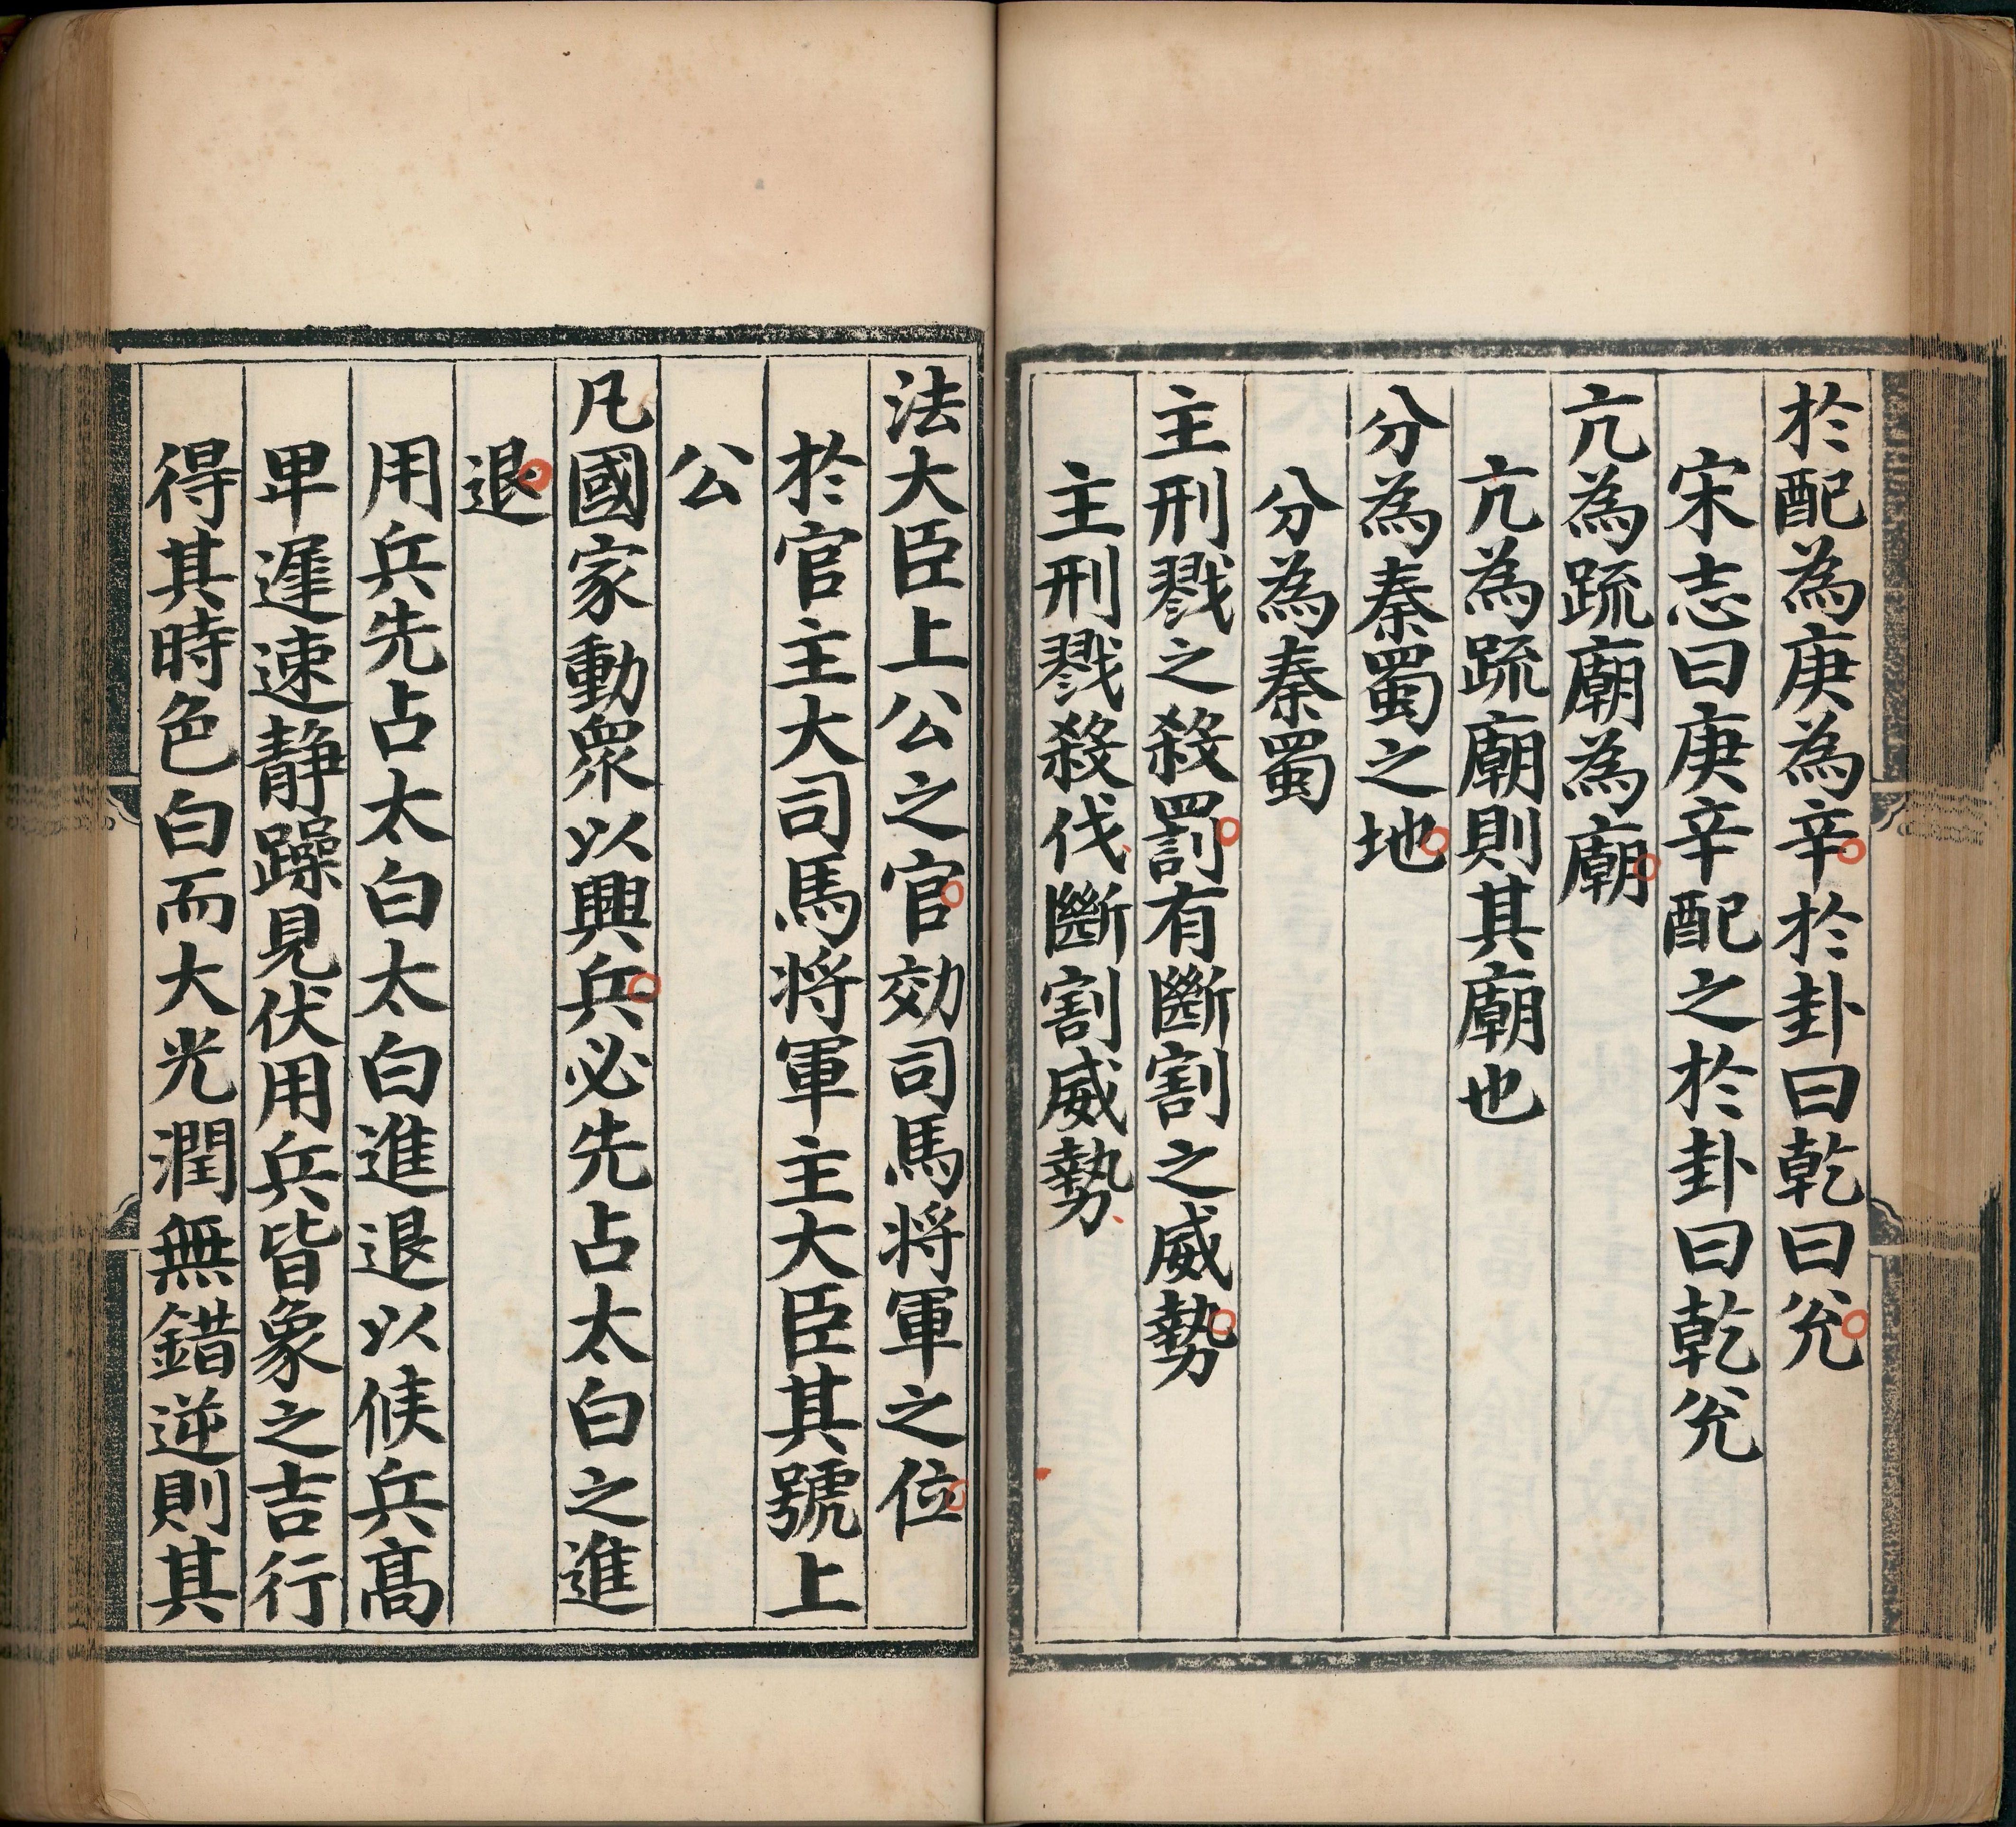 於配為庚為辛於卦曰乾曰兊
宋志曰庚辛配之於卦曰乾兊
亢為䟽廟為廟
亢為䟽廟則其廟也
分為秦蜀之地
分為秦蜀
主刑戮之殺罰有斷割之威勢
主刑戮殺伐斷割威勢
法大臣上公之官効司馬将軍之位
於官主大司馬将軍主大臣其號上
公
凡國家動衆以興兵必先占太白之進
退
用兵先占太白太白進退以候兵髙
卑遲速静躁見伏用兵皆象之吉行
得其時色白而大光潤無錯逆則其